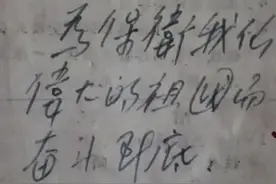 為保衛我们
偉大的祖国而
奋斗到底.